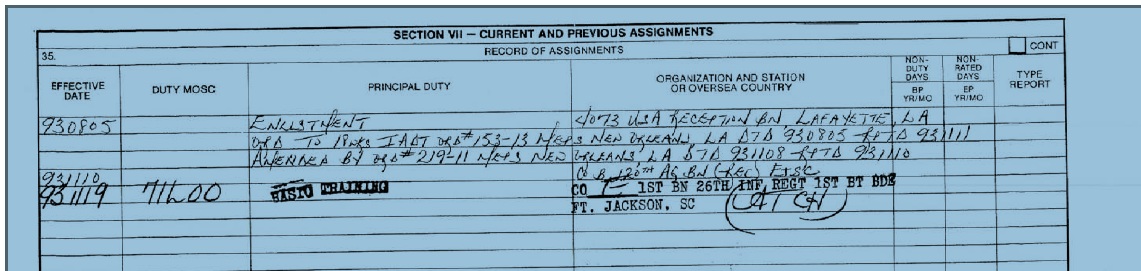 SECTION VII — CURRENT AND PREVIOUS ASSIGNMENTS
35. RECORD OF ASSIGNMENTS CONT
EFFECTIVE DATE DUTY MOSC PRINCIPAL DUTY ORGANIZATION AND STATION OR OVERSEA COUNTRY NON-DUTY DAYS NON-RATED DAYS TYPE REPORT
BP YR/MO EP YR/MO
930805 ENLISTMENT 4073 USA RECEPTION BN LAFAYETTE, LA
ORD TO 18WKS IADT ORD# 153-13 MEPS NEW ORLEANS LA DTD 930805 RPTD 931111
AMENDED BY ORD# 219-11 MEPS NEW ORLEANS, LA DTD 931108 RPTD 931110
931110 CO B 120TH AG BN (REC) FJSC
931119 71L00 BASIC TRAINING CO 1ST BN 26TH INF REGT 1ST BT BDE
FT. JACKSON, SC